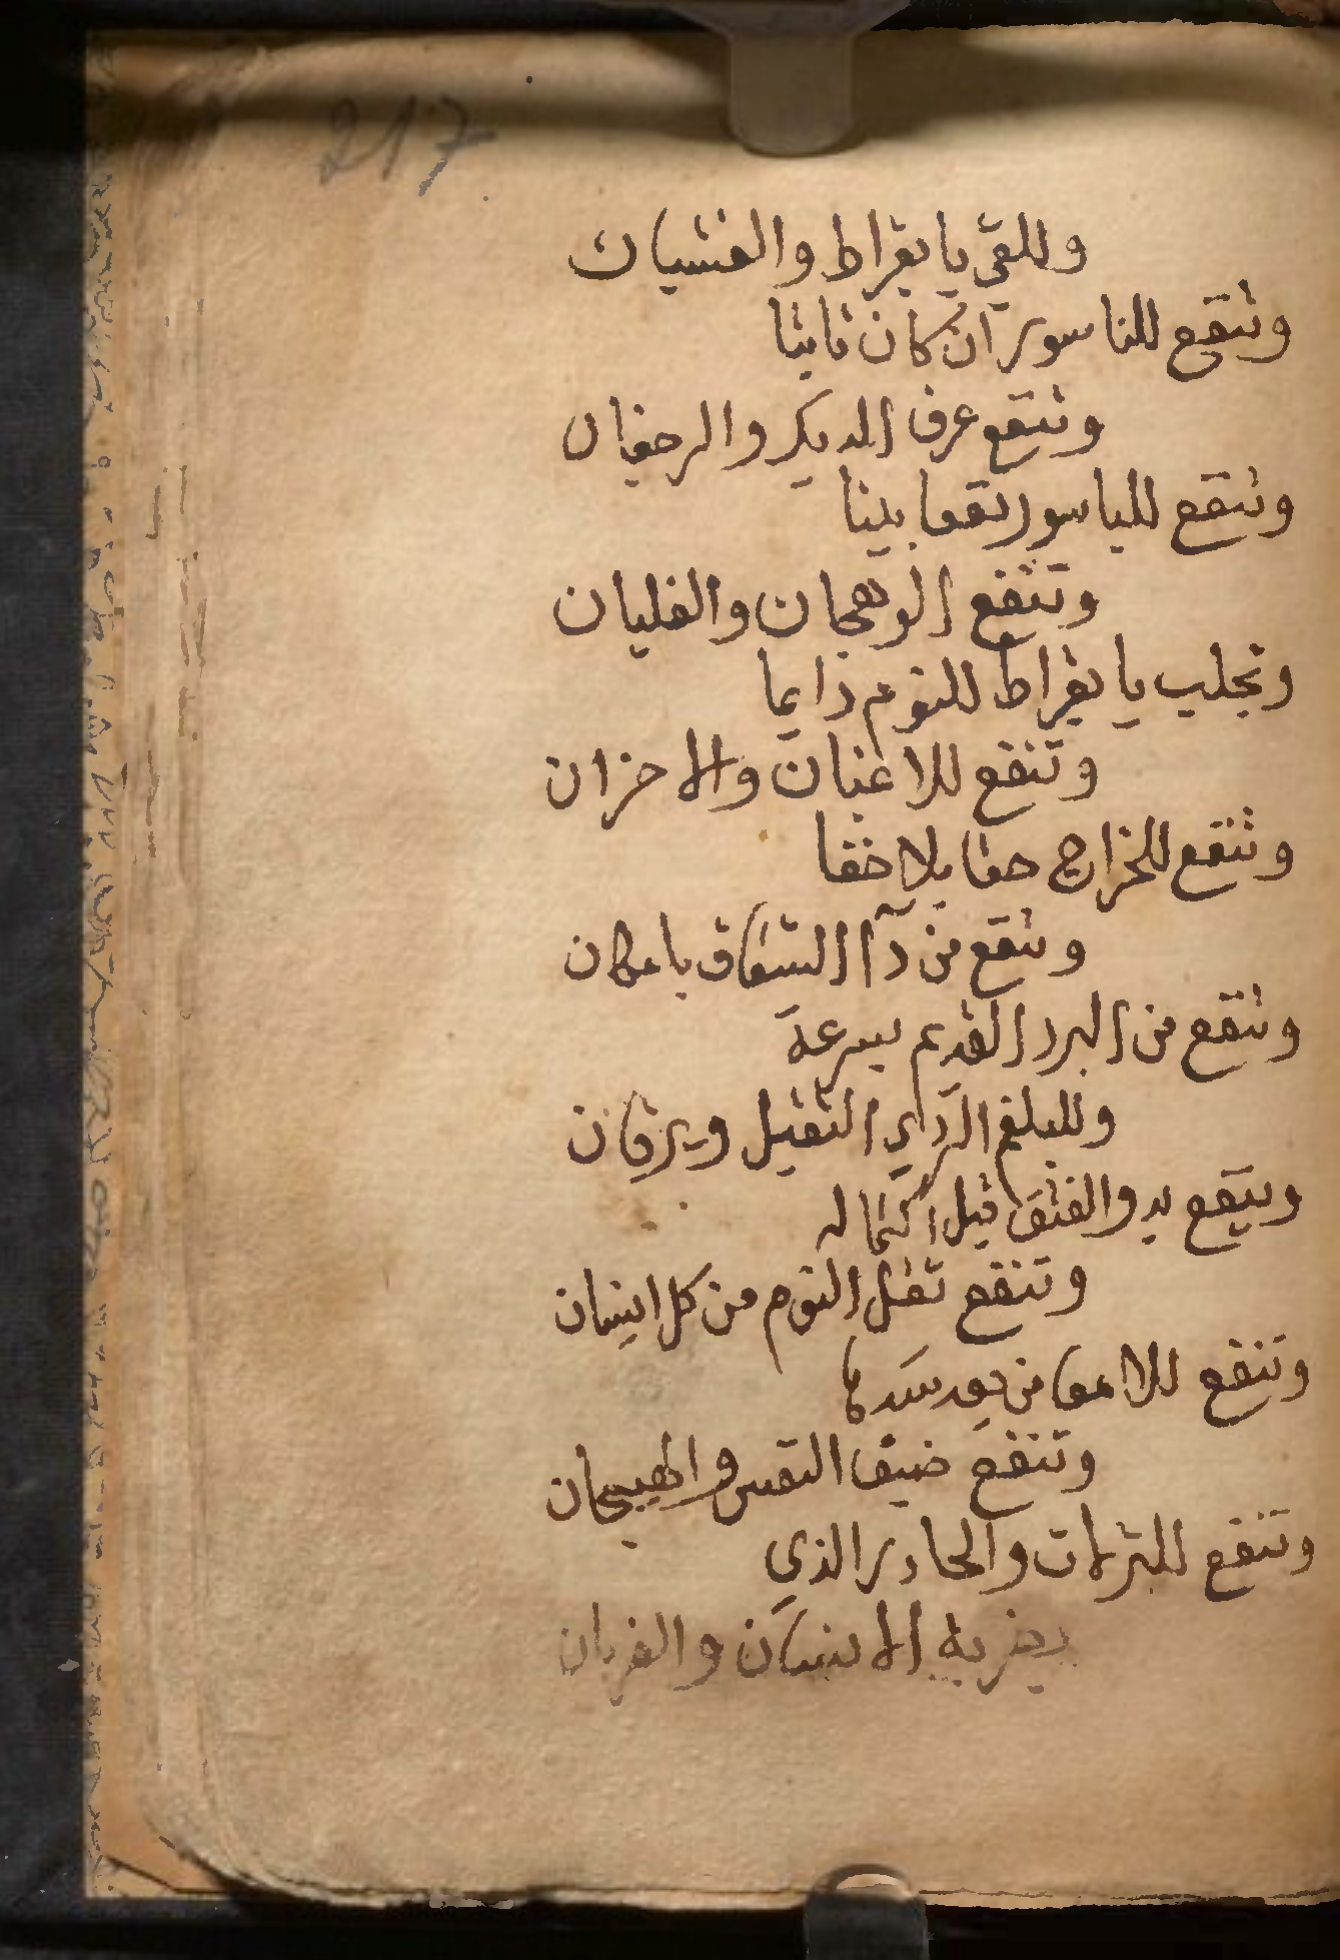 217
وللقي يا بقراط والغشيان
وتنفع للناسور ان كان نابتا
وتنفع عرف الديك والرجفان
وتنفع للباسور نفعا بينا
وتنفع الوهجان والغليان
وتجلب يا بقراط للنوم دايما
وتنفع للاغبان والاحزان
وتنفع للخراج حقا بلا خفا
وتنفع من دآ الشقاق بامكان
وتنفع من البرد القديم بسرعة
وللبلغم الردي الثقيل ويرقان
وتنفع بدو الفتق قبل اكتماله
وتنفع ثقل النوم من كل انسان
وتنفع للامعا من بعد سدها
وتنفع ضيق النفس والهيجان
وتنفع للنزلات والحادر الذي
الانسان